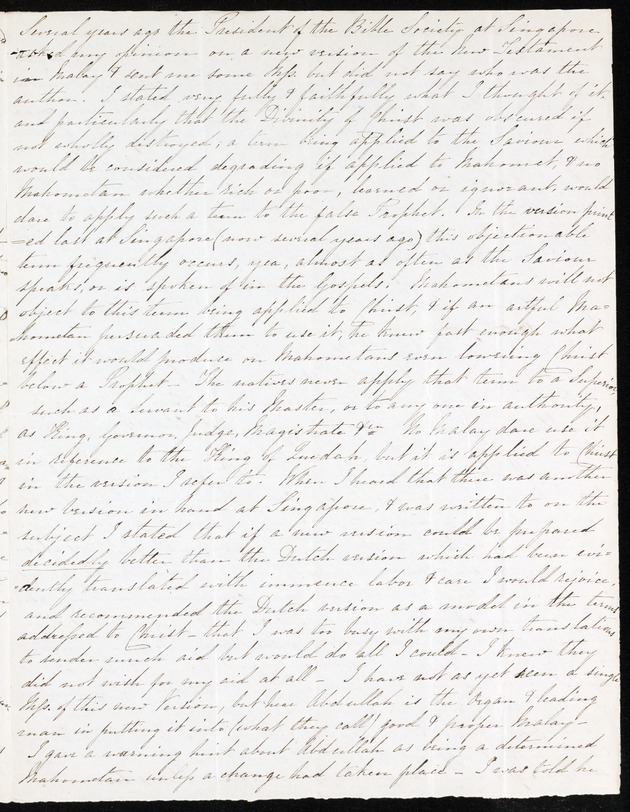 Several years ago the President of the Bible Society at Singapore
asked my opinion on a new version of the New Testament
in Malay & sent me some Mss. but did not say who was the
author. I stated very fully & faithfully what I thought of it
and particularly that the Divinity of Christ was obscured if
not wholly distroyed; a term being applied to the Saviour which
would be considered degrading if applied to Mahomet, & no
Mahometan whether rich or poor, learned or ignorant, would
dare to apply such a term to the false Prophet. In the version print
=ed last at Singapore (now several years ago) this objectionable
term frequently occurs, yea, almost as often as the Saviour
speaks, or is spoken of in the Gospels. Mahometans will not
object to this term being applied to Christ, & if an artful Ma-
hometan persuaded them to use it, he knew fast enough what
effect it would produce on Mahometans even lowering Christ
below a Prophet - The natives never apply that term to a Superior
such as a servant to his Master, or to any one in authority,
as King, Governor, Judge, Magistrate &c No Malay dare use it
in reference to the King of Quedah, but it is applied to Christ
in the version I refer to. When I heard that there was another
new version in hand at Singapore, & was written to on the
subject I stated that if a new version could be prepared
decidedly better than the Dutch version which had been evi-
dently translated with immence labor & care I would rejoice,
and recommended the Dutch version as a model in the terms
addressed to Christ - that I was too busy with my own translations
to render much aid but would do all I could - I knew they
did not wish for my aid at all - I have not as yet seen a single
Mss. of this new Version, but hear Abdullah is the Organ & leading
man in putting it into (what they call) good & proper Malay -
I gave a warning hint about Abdullah as being a determined
Mahometan unless a change had taken place - I was told he